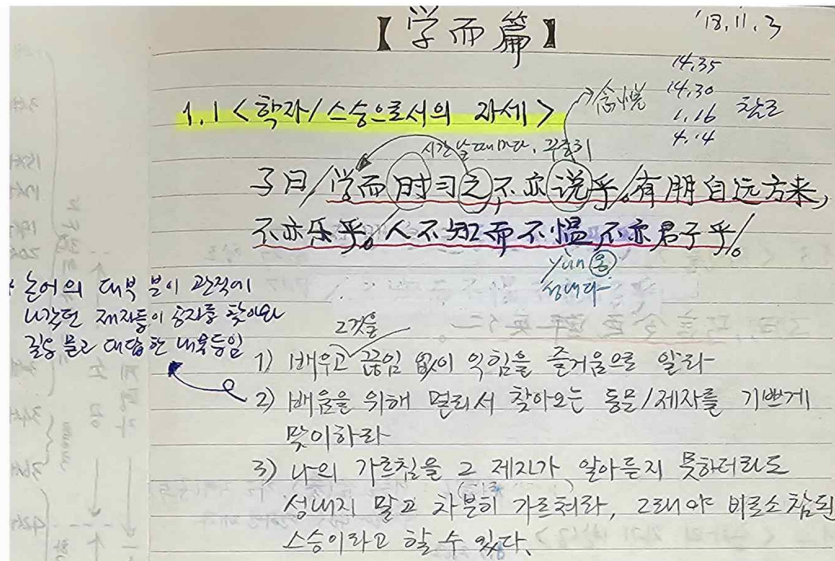 【学而篇】
'18.11.3
14.35
14.30
1.16 참조
4.14
1.1 <학자/스승으로서의 자세>
念悦
시간날때마다, 꾸준히
子曰/学而时习之,不亦说乎。/有朋自远方来,
不亦乐乎。/人不知而不愠,不亦君子乎/。
yùn 온
성내다
논어의 대부분이 관직에
나갔던 제자들이 공자를 찾아와
질문 물고 대답한 내용들임
그것을
1) 배우고 끊임 없이 익힘을 즐거움으로 알라
2) 배움을 위해 멀리서 찾아오는 동문/제자를 기쁘게
맞이하라
3) 나의 가르침을 그 제자가 알아듣지 못하더라도
성내지 말고 차분히 가르쳐라, 그래야 비로소 참된
스승이라고 할 수 있다.